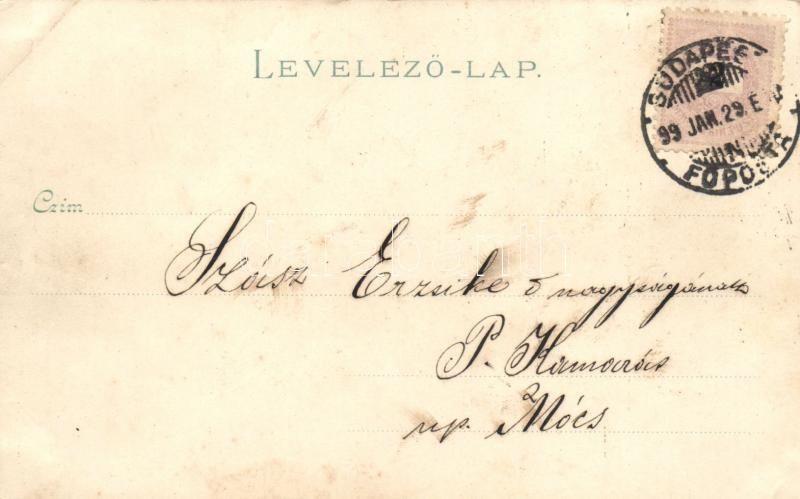 LEVELEZŐ-LAP.
BUDAPE
99 JAN. 29. E
FŐPOSTA
Czim
Szász Erzsike ő nagyságának
P. Kamarás
up. Mócs